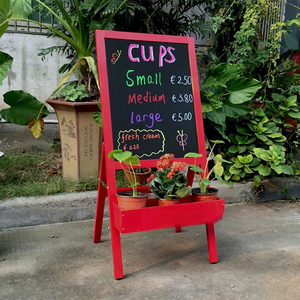 CUPS
Small €2.50
Medium €3.80
large €5.00
fresh cream
€0.20